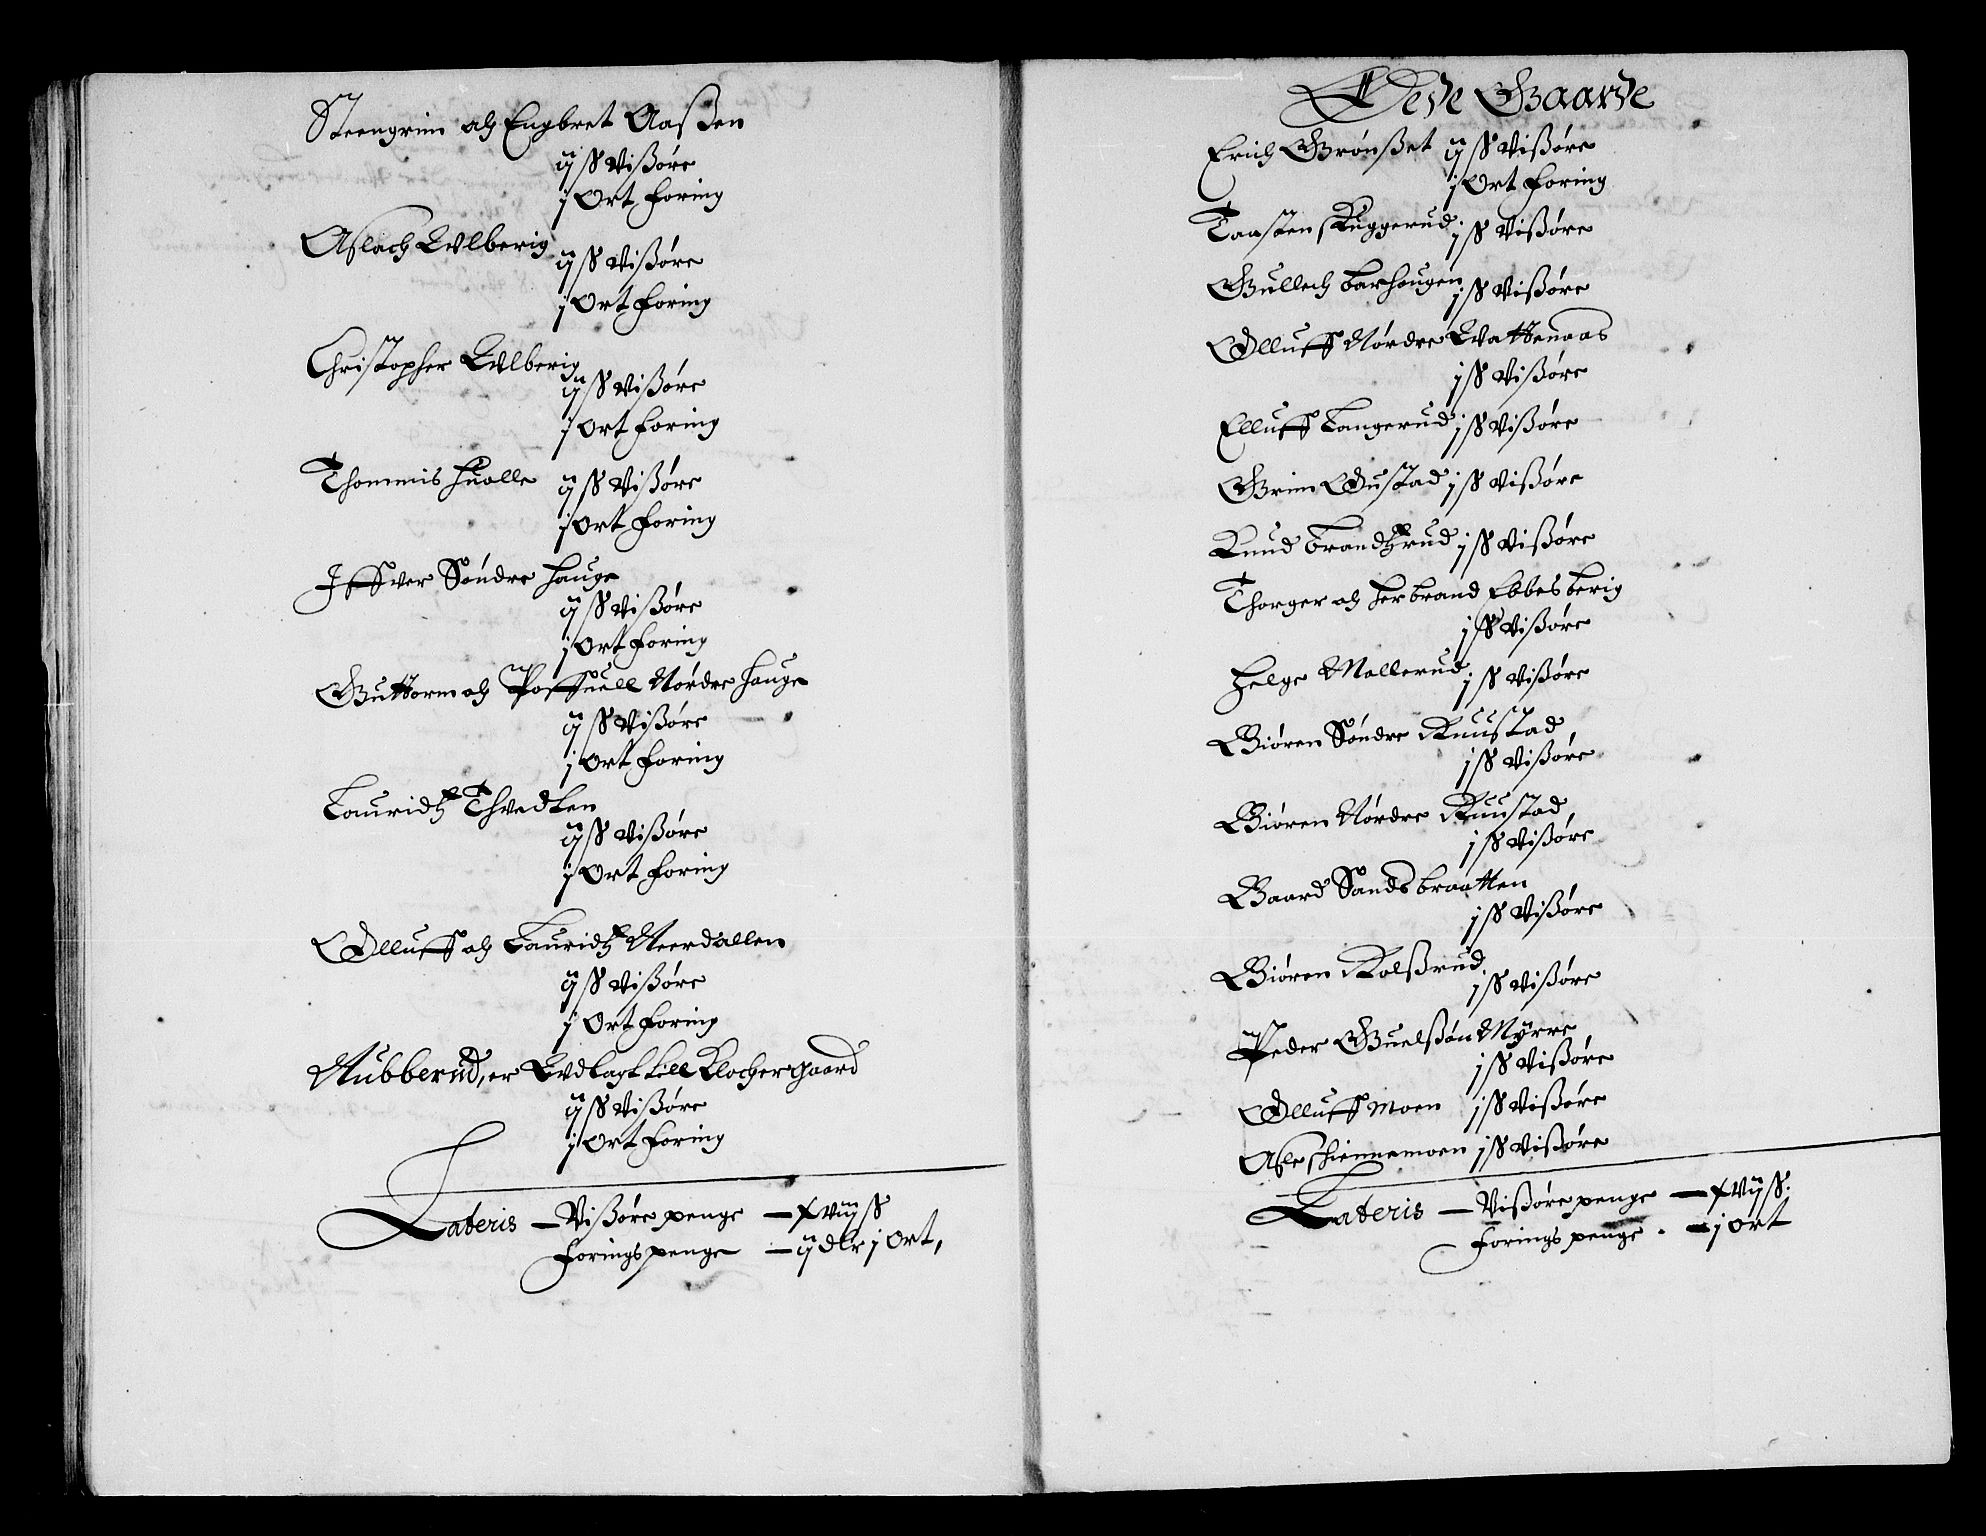 Steengrim och Engbret Aaßen
ij ß Vißøre
j Ort foring
Aslach Wlberig
ij ß Vißøre
j Ort foring
Christopher Wlberig
ij ß Vißøre
j Ort foring
Thommis Hualle
ij ß Vißøre
j Ort foring
Iffwer Søndre Hauge
ij ß Vißøre
j Ort foring
Guttorm och Poffuell Nørdre Hauge
ij ß Vißøre
j Ort foring
Lauridtz Thvedten
ij ß Vißøre
j Ort foring
Olluff och Lauridtz Neerdallen
ij ß Vißøre
j Ort foring
Nubberud, er Wdlagt till Klochergaard
ij ß Vißøre
j Ort foring
Lateris — Vißøre penge — xviij ß
forings penge — ij dlr j Ort,
Øede Gaarde
Erich Grønßet ij ß Vißøre
j Ort foring
Taasten skuggerud j ß Vißøre
Gullech Barhougen j ß Vißøre
Olluff Nørdre Wattenaas
j ß Vißøre
Elluff Langerud j ß Vißøre
Grim Gustad j ß Vißøre
Knud Brandtzrud j ß Vißøre
Thorger och Herbrand Ebbesberig
j ß Vißøre
Helge Mallerud j ß Vißøre
Biøren Søndre Knustad
j ß Vißøre
Biøren Nørdre Knustad
j ß Vißøre
Baard Sandsbraatten
j ß Vißøre
Biøren Kolßrud
j ß Vißøre
Peder Guelßøn Myrre
j ß Vißøre
Olluff Moen j ß Vißøre
Asle skiennemoen j ß Vißøre
Lateris — Vißøre penge — xvij ß.
forings penge. — j Ort